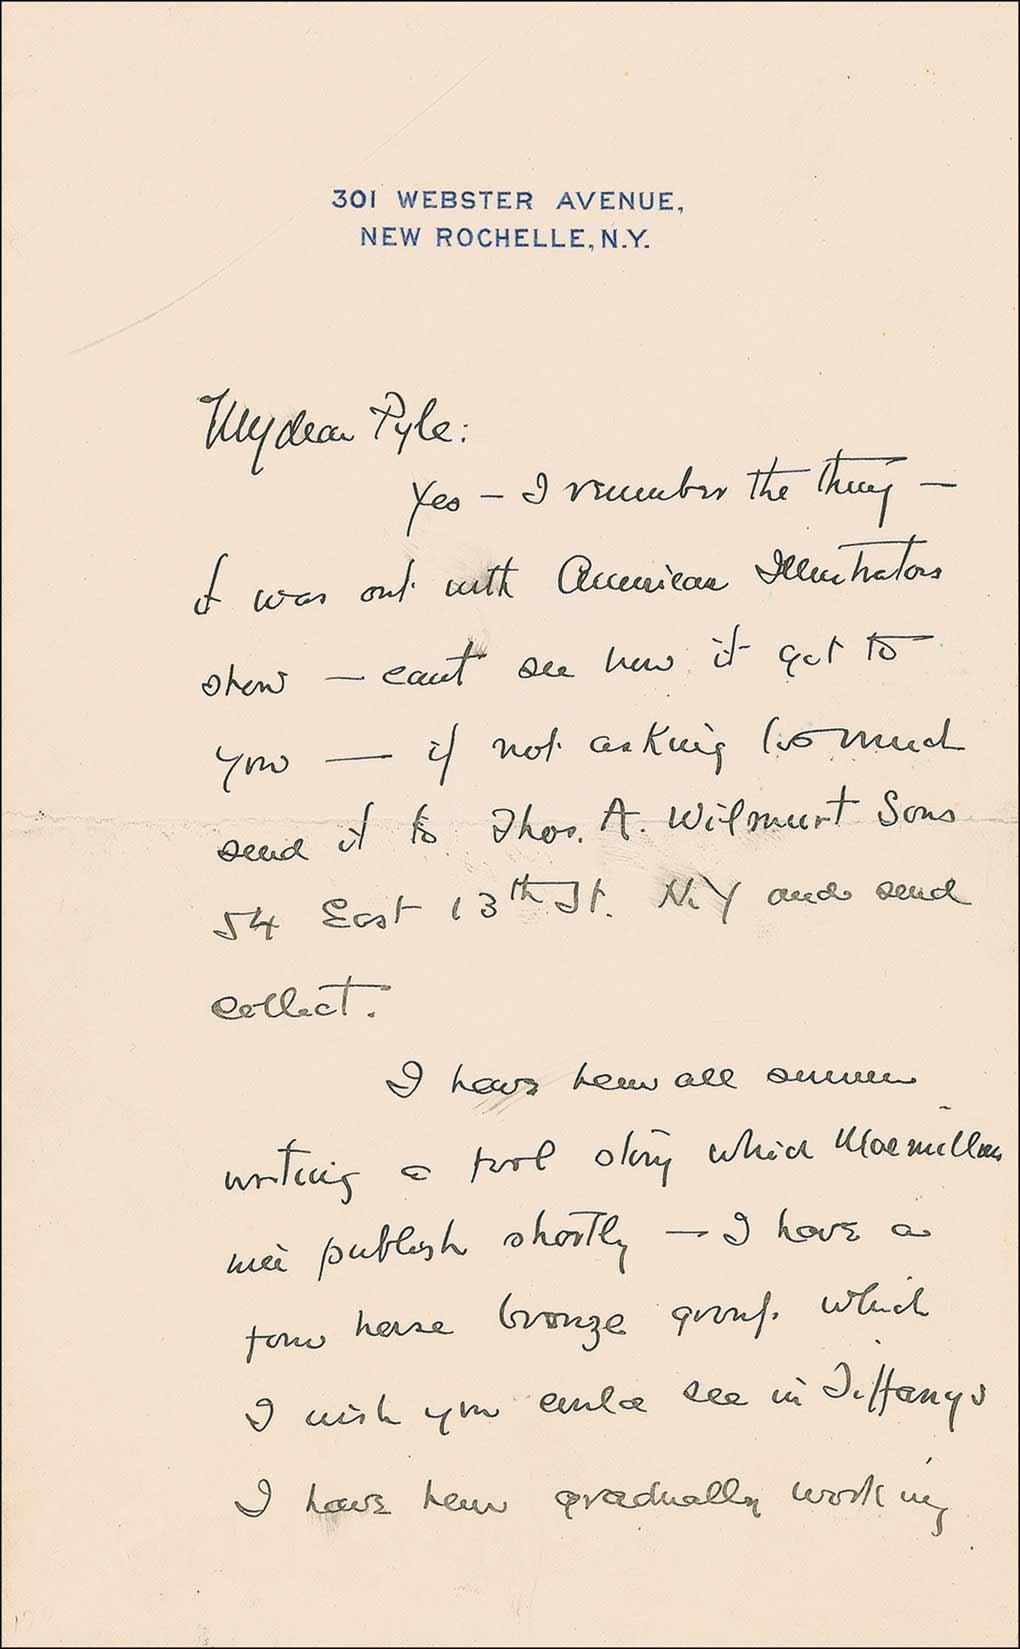 301 WEBSTER AVENUE,
NEW ROCHELLE, N.Y.
My dear Pyle:
Yes — I remember the thing —
it was out with American Illustrators
show — cant see how it got to
you — if not asking too much
send it to Thos. A. Wilmurt Sons
54 East 13th St. N.Y and send
collect.
I have been all summer
writing a story which Macmillan
will publish shortly — I have a
four horse bronze group which
I wish you could see in Tiffanys
I have been gradually working